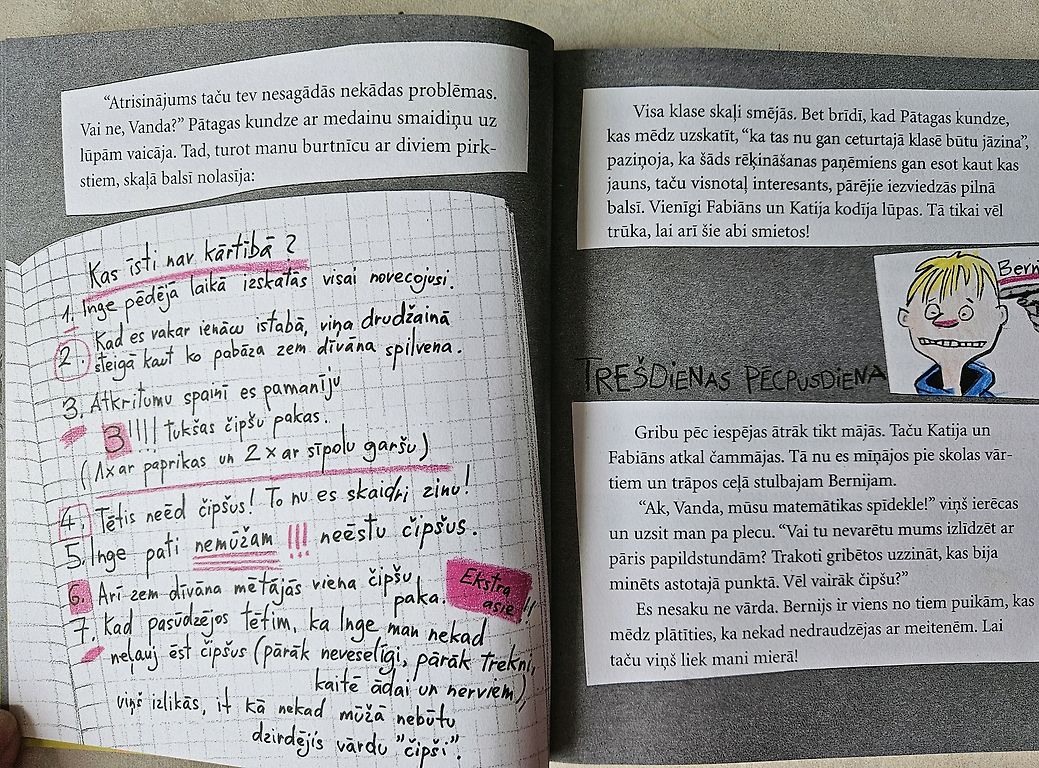 “Atrisinājums taču tev nesagādās nekādas problēmas.
Vai ne, Vanda?” Pātagas kundze ar medainu smaidiņu uz
lūpām vaicāja. Tad, turot manu burtnīcu ar diviem pirk-
stiem, skaļā balsī nolasīja:
Kas īsti nav kārtībā?
1. Inge pēdējā laikā izskatās visai novecojusi.
2. Kad es vakar ienācu istabā, viņa drudžainā
steigā kaut ko pabāza zem dīvāna spilvena.
3. Atkritumu spainī es pamanīju
3!!!! tukšas čipšu pakas.
(1x ar paprikas un 2x ar sīpolu garšu)
4. Tētis neēd čipšus! To nu es skaidri zinu!
5. Inge pati nemūžam !!! neēstu čipšus.
6. Arī zem dīvāna mētājās viena čipšu
paka. Ekstra
asie!!
7. Kad pasūdzējos tētim, ka Inge man nekad
neļauj ēst čipšus (pārāk neveselīgi, pārāk trekni,
kaitē ādai un nerviem),
viņš izlikās, it kā nekad mūžā nebūtu
dzirdējis vārdu "čipši".
Visa klase skaļi smējās. Bet brīdī, kad Pātagas kundze,
kas mēdz uzskatīt, “ka tas nu gan ceturtajā klasē būtu jāzina”,
paziņoja, ka šāds rēķināšanas paņēmiens gan esot kaut kas
jauns, taču visnotaļ interesants, pārējie iezviedzās pilnā
balsī. Vienīgi Fabiāns un Katija kodīja lūpas. Tā tikai vēl
trūka, lai arī šie abi smietos!
Bern
TREŠDIENAS PĒCPUSDIENA
Gribu pēc iespējas ātrāk tikt mājās. Taču Katija un
Fabiāns atkal čammājas. Tā nu es mīņājos pie skolas vār-
tiem un trāpos ceļā stulbajam Bernijam.
“Ak, Vanda, mūsu matemātikas spīdekle!” viņš ierēcas
un uzsit man pa plecu. “Vai tu nevarētu mums izlīdzēt ar
pāris papildstundām? Trakoti gribētos uzzināt, kas bija
minēts astotajā punktā. Vēl vairāk čipšu?”
Es nesaku ne vārda. Bernijs ir viens no tiem puikām, kas
mēdz plātīties, ka nekad nedraudzējas ar meitenēm. Lai
taču viņš liek mani mierā!